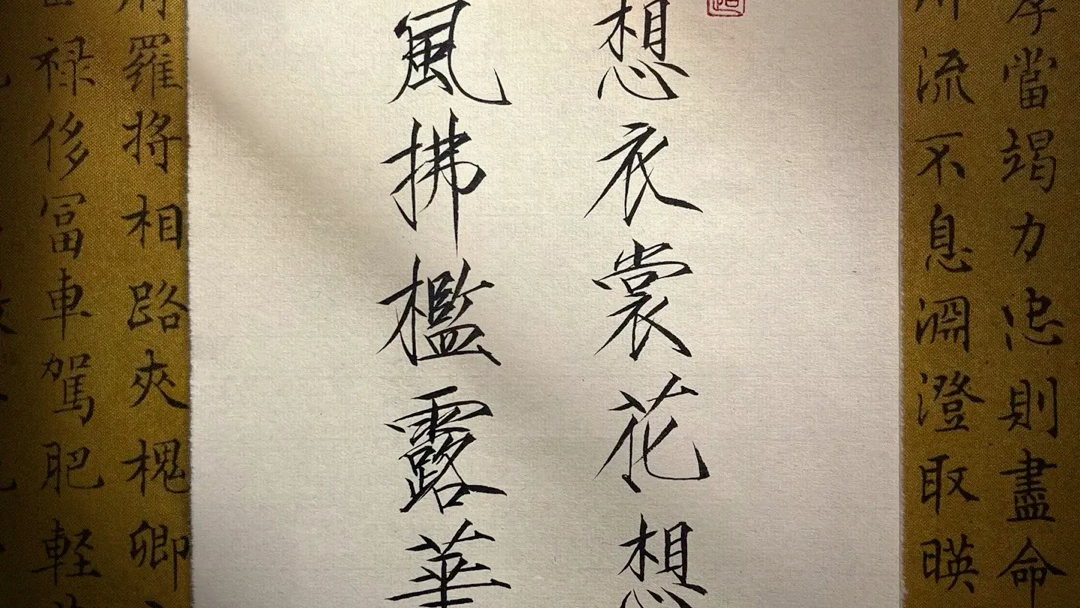 孝當竭力忠則盡命
川流不息淵澄取暎
想衣裳花想
風拂檻露華
府羅将相路夾槐卿
禄侈冨車駕肥軽